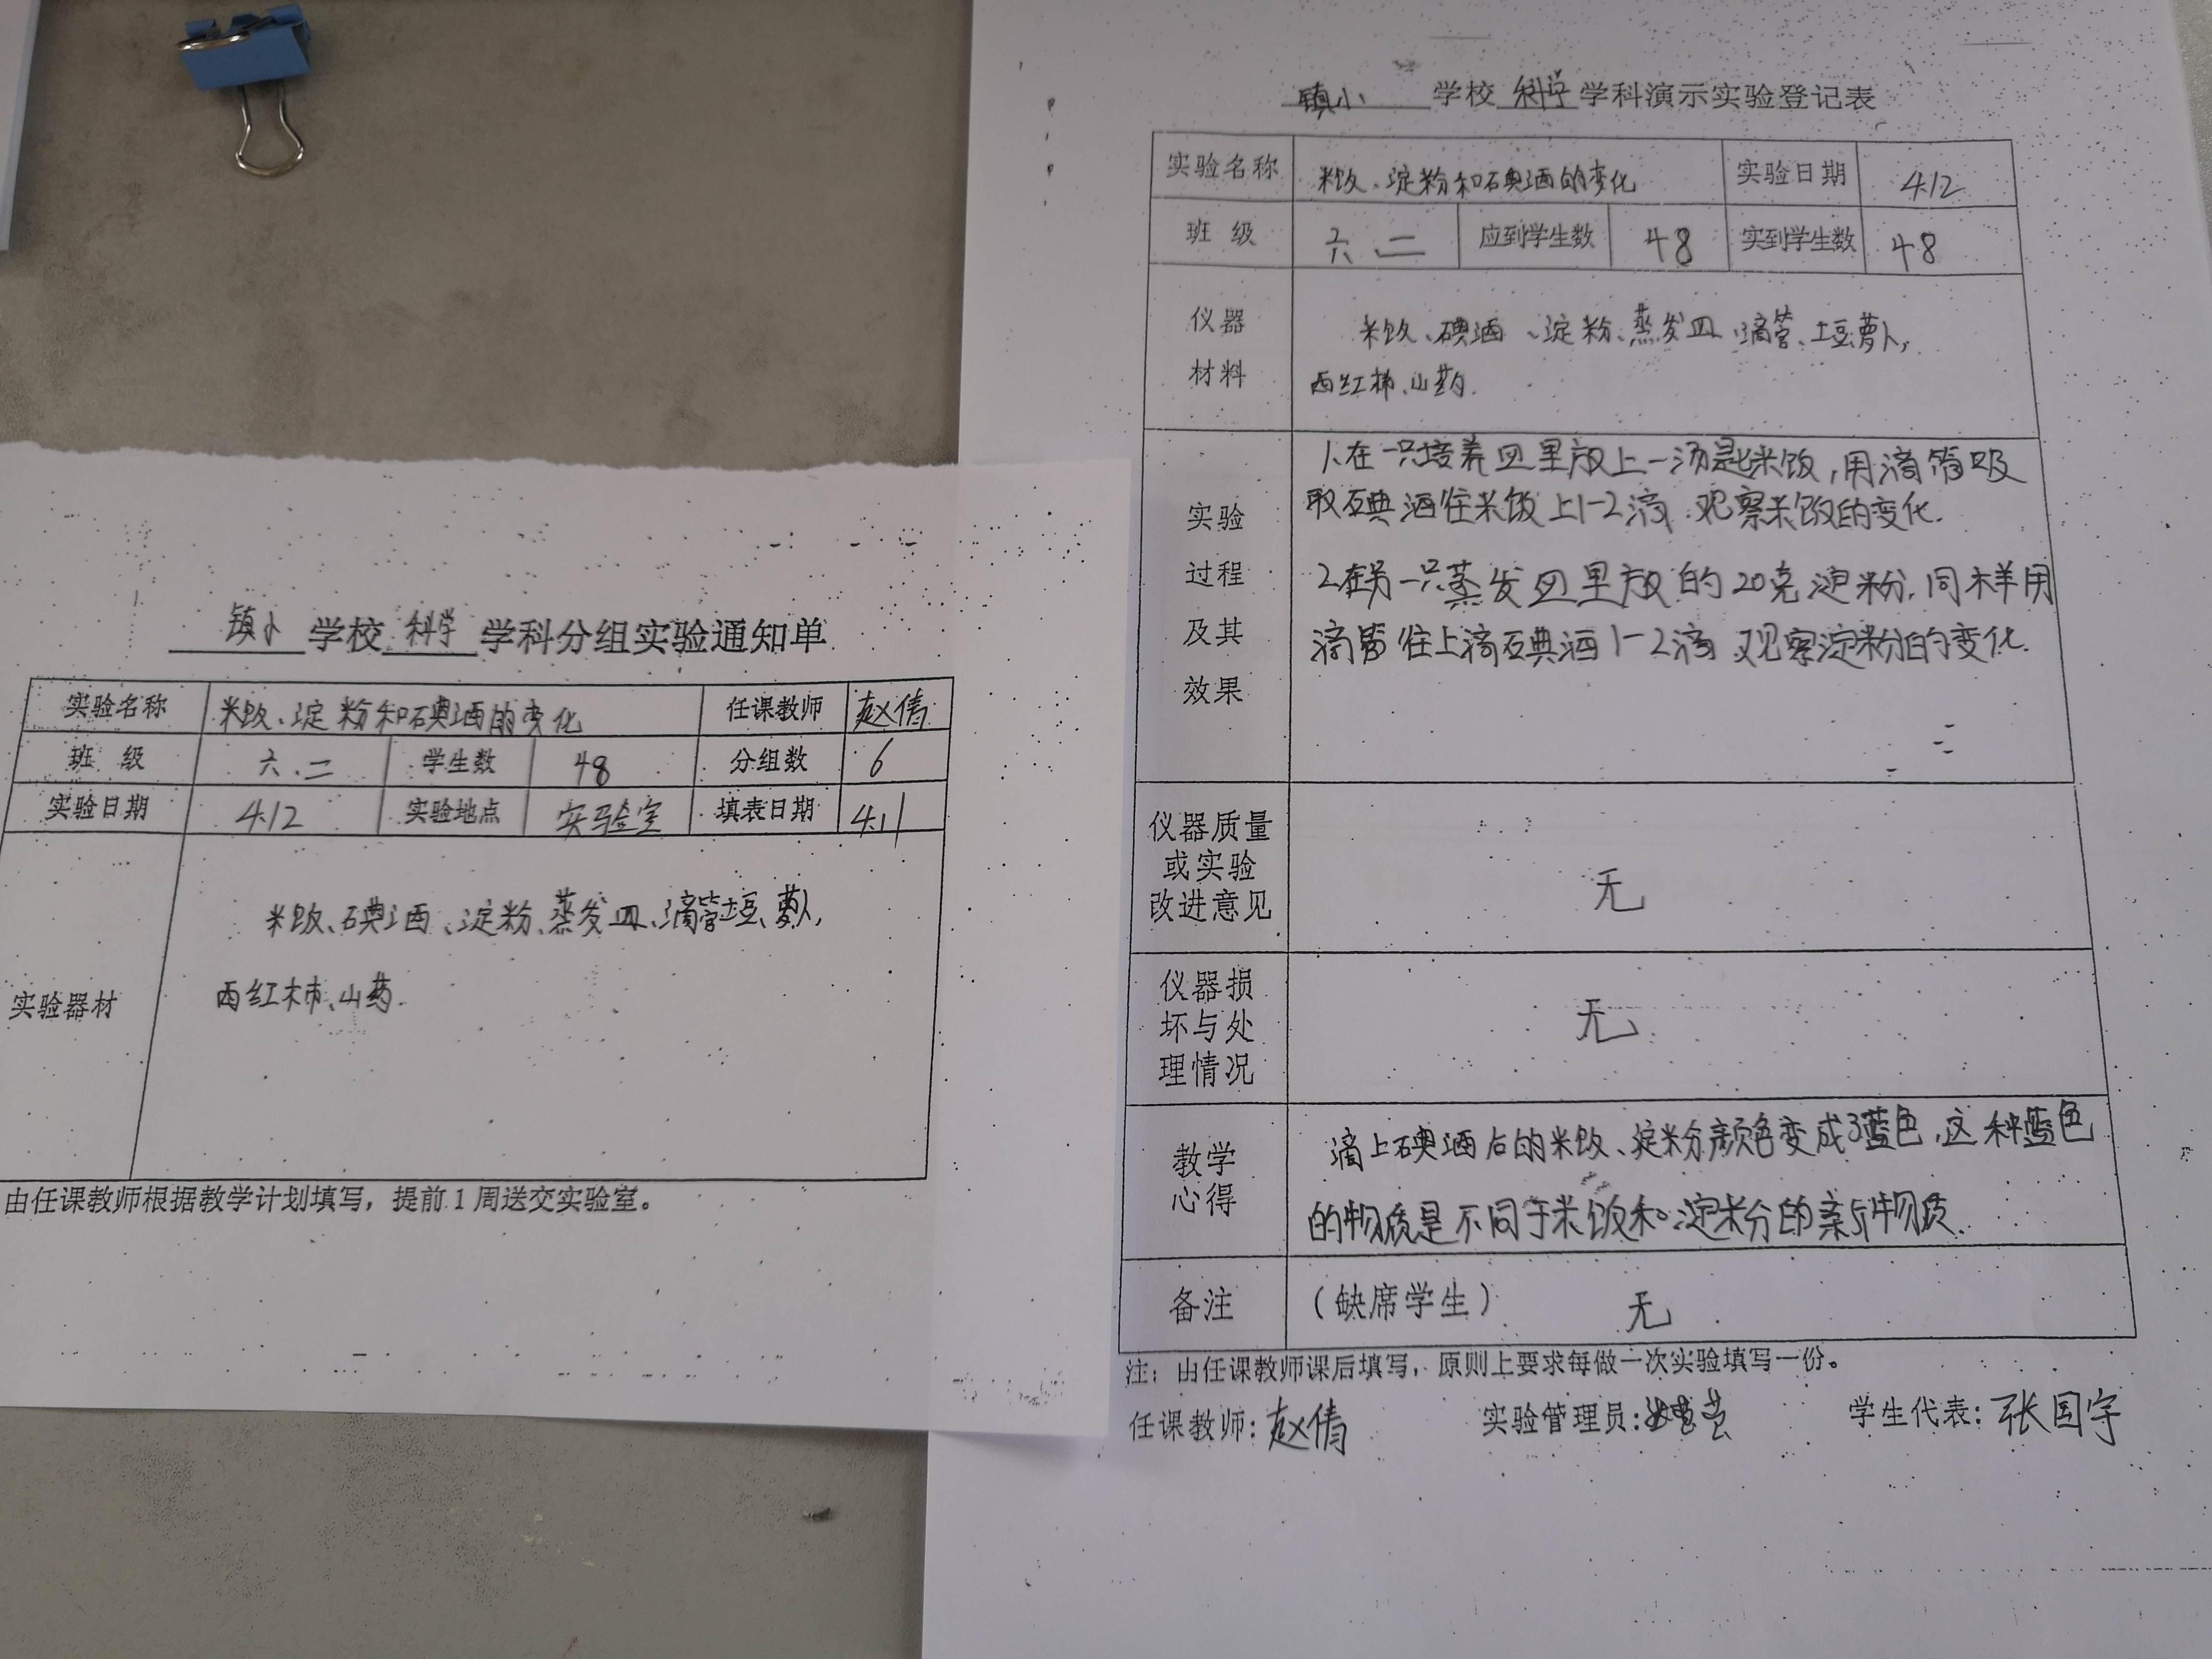 镇小 学校 科学 学科分组实验通知单
实验名称 米饭、淀粉和碘酒的变化 任课教师 赵倩
班 级 六.二 学生数 48 分组数 6
实验日期 4.12 实验地点 实验室 填表日期 4.11
实验器材
米饭、碘酒、淀粉、蒸发皿、滴管、土豆、萝卜,
西红柿、山药.
由任课教师根据教学计划填写，提前1周送交实验室。
镇小 学校 科学 学科演示实验登记表
实验名称 米饭、淀粉和碘酒的变化 实验日期 4.12
班 级 六.二 应到学生数 48 实到学生数 48
仪器
材料
米饭、碘酒、淀粉、蒸发皿、滴管、土豆、萝卜,
西红柿、山药.
实验
过程
及其
效果
1.在一只培养皿里放上一汤匙米饭,用滴管吸
取碘酒往米饭上1-2滴.观察米饭的变化.
2.在另一只蒸发皿里放的20克淀粉.同样用
滴管往上滴碘酒1-2滴.观察淀粉的变化.
仪器质量
或实验
改进意见
无
仪器损
坏与处
理情况
无
教学
心得
滴上碘酒后的米饭、淀粉颜色变成了蓝色,这种蓝色
的物质是不同于米饭和淀粉的新物质.
备注 （缺席学生） 无
注：由任课教师课后填写，原则上要求每做一次实验填写一份。
任课教师: 赵倩 实验管理员: 学生代表: 张国宇